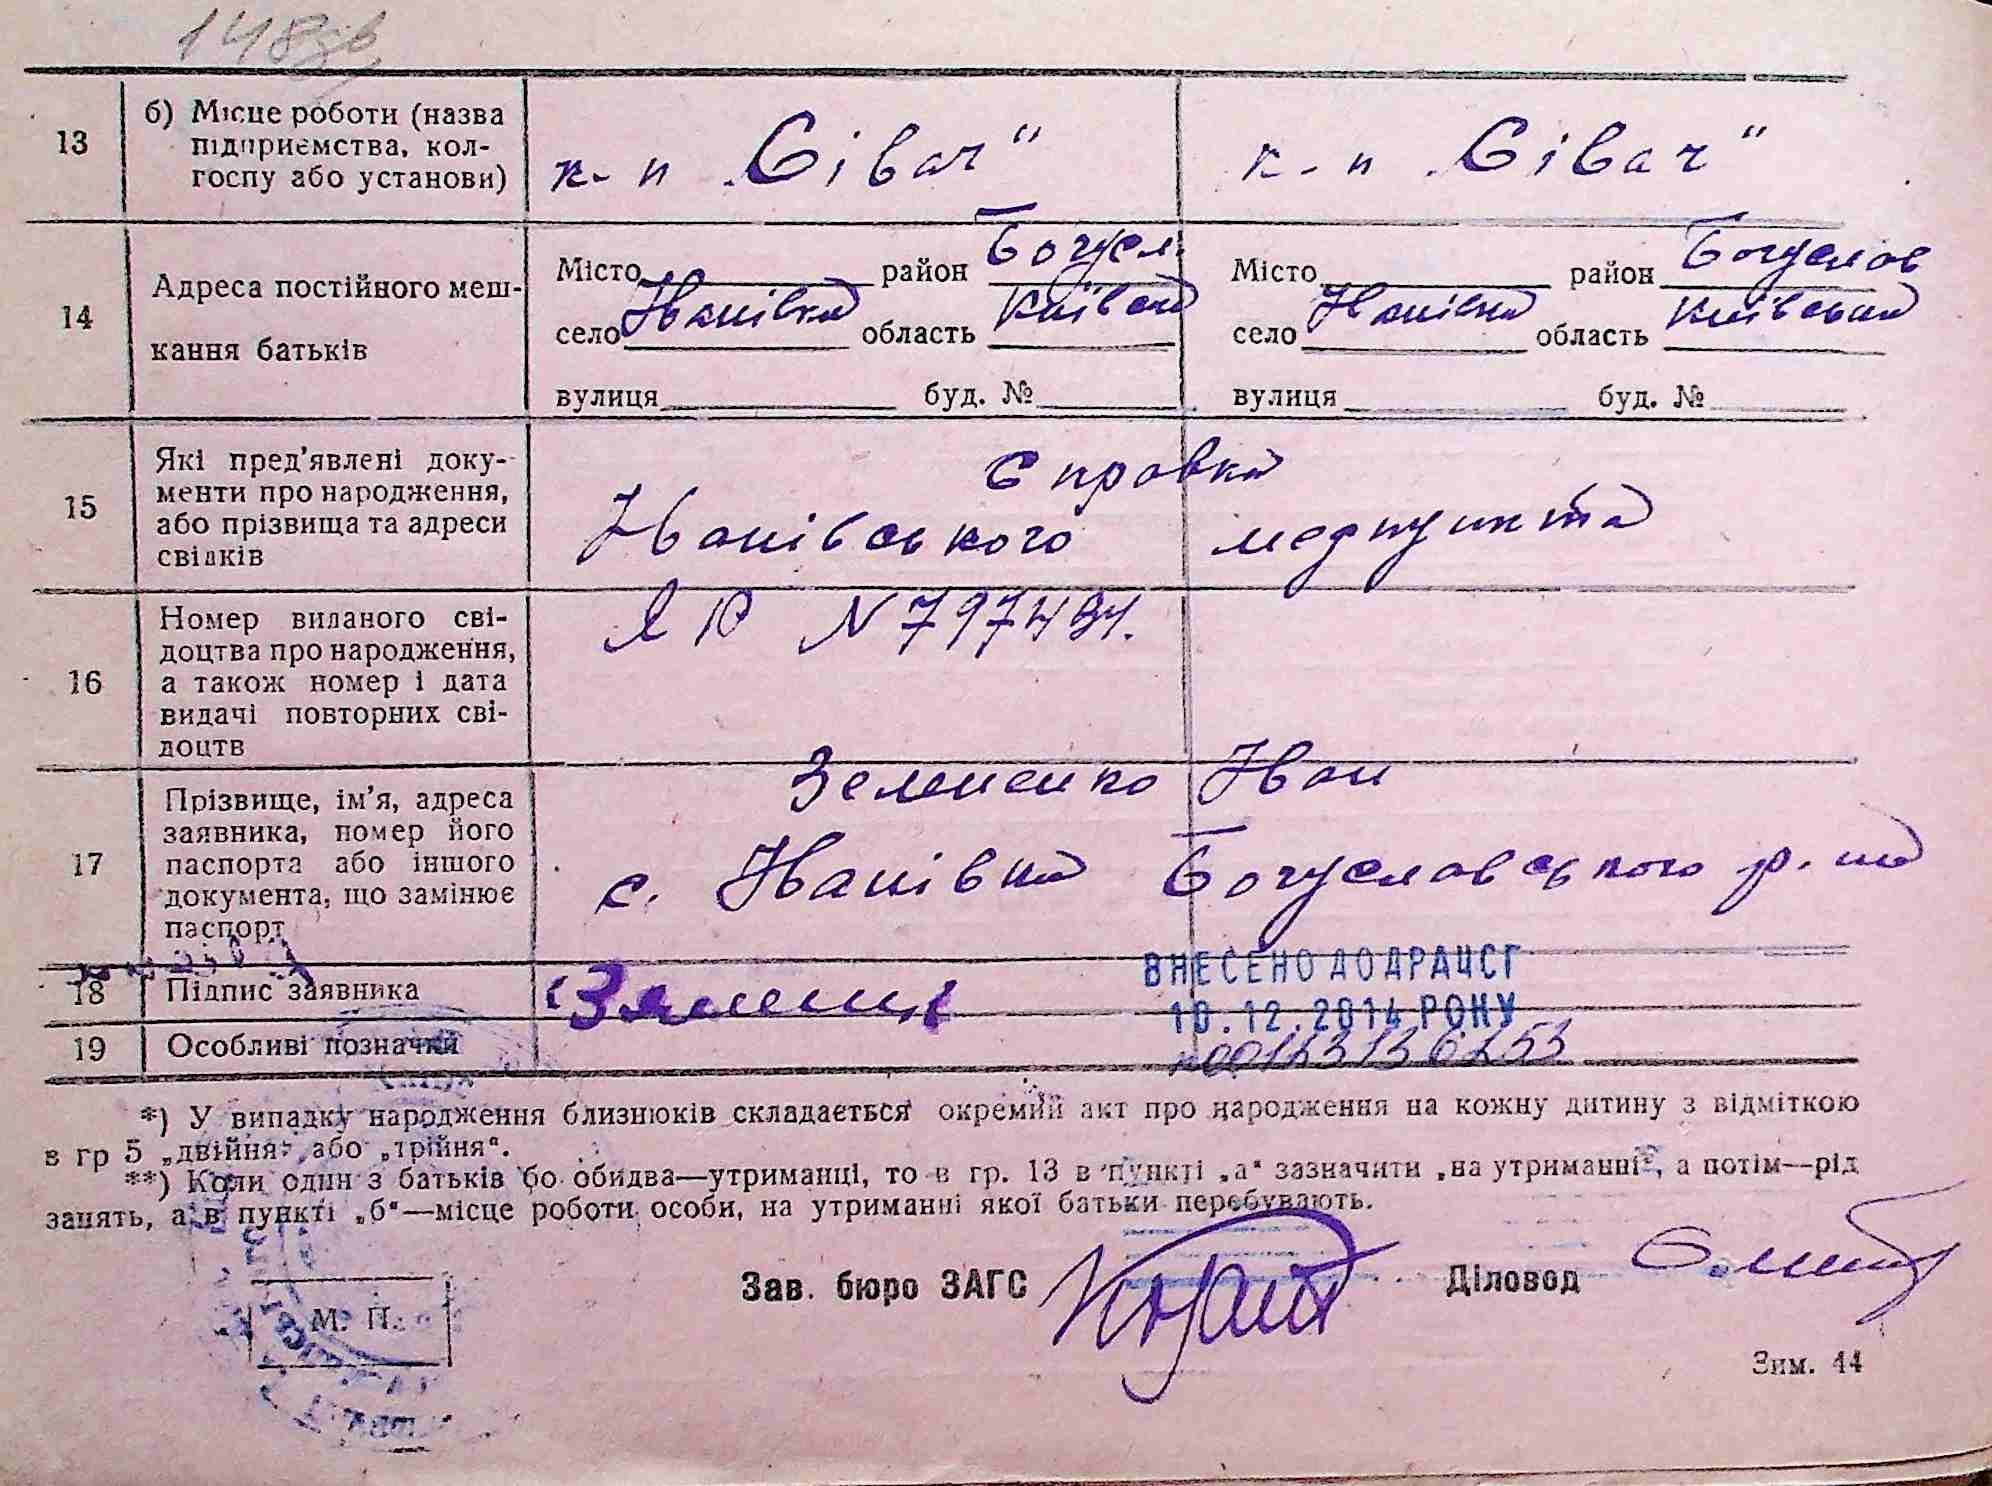 148зв
13
б) Місце роботи (назва
підприємства, кол-
госпу або установи)
к-п „Сівач"
к-п „Сівач"
14
Адреса постійного меш-
кання батьків
Місто район Богусл.
село Іванівка область Київськ
вулиця буд. №
Місто район Богуслав
село Іванівка область Київська
вулиця буд. №
15
Які пред'явлені доку-
менти про народження,
або прізвища та адреси
свідків
Справка
Іванівського медпункта
16
Номер виданого сві-
доцтва про народження,
а також номер і дата
видачі повторних сві-
доцтв
ЯЮ N 797491.
17
Прізвище, ім'я, адреса
заявника, номер його
паспорта або іншого
документа, що замінює
паспорт
Земленко Іван
с. Іванівка Богуславського р-на
18
Підпис заявника
ВНЕСЕНО ДО ДРАЦСГ
10.12.2014 РОКУ
19
Особливі позначки
№00123136253
*) У випадку народження близнюків складається окремий акт про народження на кожну дитину з відміткою
в гр 5 „двійня" або „трійня".
**) Коли один з батьків бо обидва—утриманці, то в гр. 13 в пункті „а" зазначити „на утриманні", а потім—рід
занять, а в пункті „б"—місце роботи особи, на утриманні якої батьки перебувають.
Зав. бюро ЗАГС
Діловод
М. П.
Зим. 44